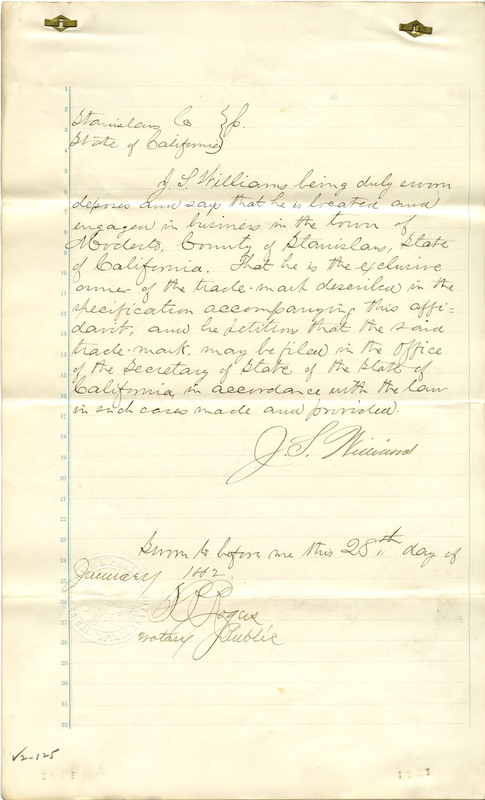 Stanislaus Co } S.
State of California }
J. S. Williams being duly sworn
deposes and says that he is located and
engaged in business in the town of
Modesto, County of Stanislaus, State
of California. That he is the exclusive
owner of the trade-mark described in the
specification accompanying this affi-
davit, and he petition that the said
trade-mark, may be filed in the Office
of the Secretary of State, of the State of
California, in accordance with the law
in such cases made and provided.
J. S. Williams
Sworn to before me this 28th day of
January 1882.
Rogers
Notary Public
V2-125